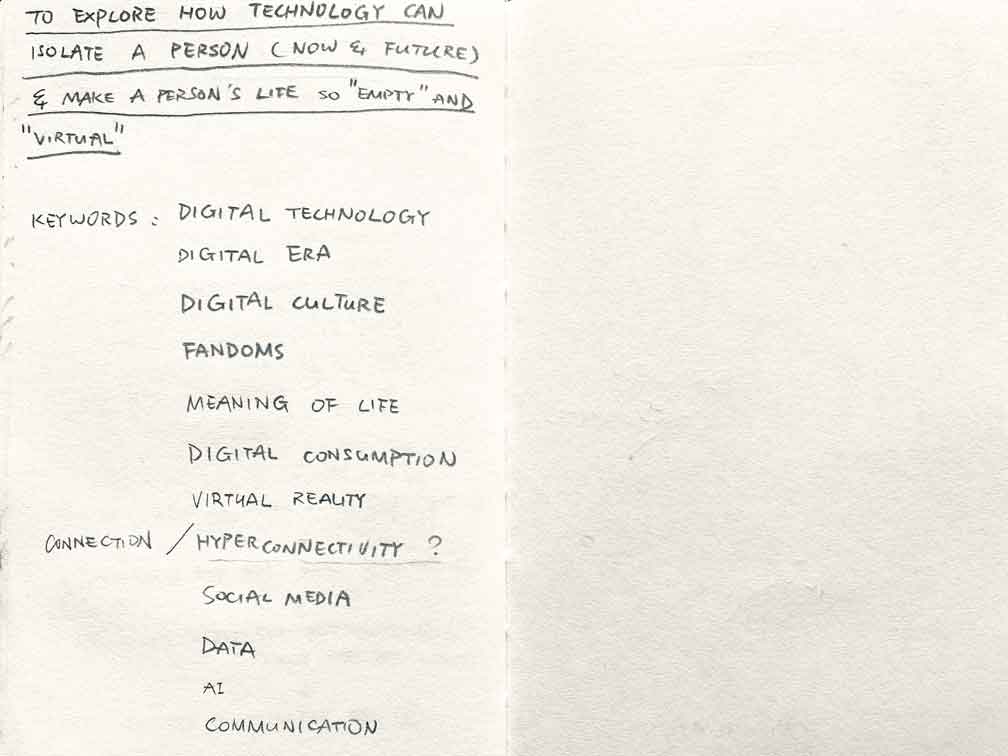 TO EXPLORE HOW TECHNOLOGY CAN
ISOLATE A PERSON (NOW & FUTURE)
& MAKE A PERSON'S LIFE SO "EMPTY" AND
"VIRTUAL"
KEYWORDS : DIGITAL TECHNOLOGY
DIGITAL ERA
DIGITAL CULTURE
FANDOMS
MEANING OF LIFE
DIGITAL CONSUMPTION
VIRTUAL REALITY
CONNECTION / HYPERCONNECTIVITY ?
SOCIAL MEDIA
DATA
AI
COMMUNICATION